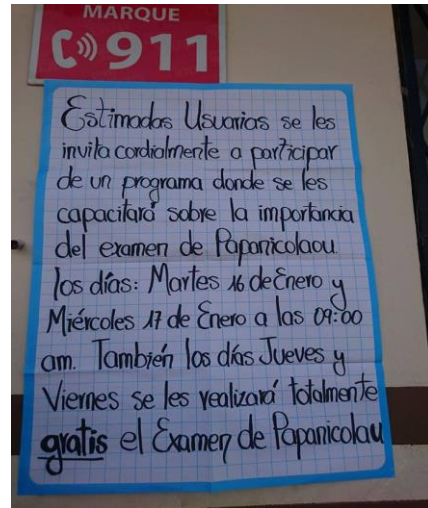 MARQUE
911
Estimadas Usuarias se les
invita cordialmente a participar
de un programa donde se les
capacitará sobre la importancia
del examen de Papanicolaou
los días: Martes 16 de Enero y
Miércoles 17 de Enero a las 09:00
am. También los días Jueves y
Viernes se les realizará totalmente
gratis el Examen de Papanicolau